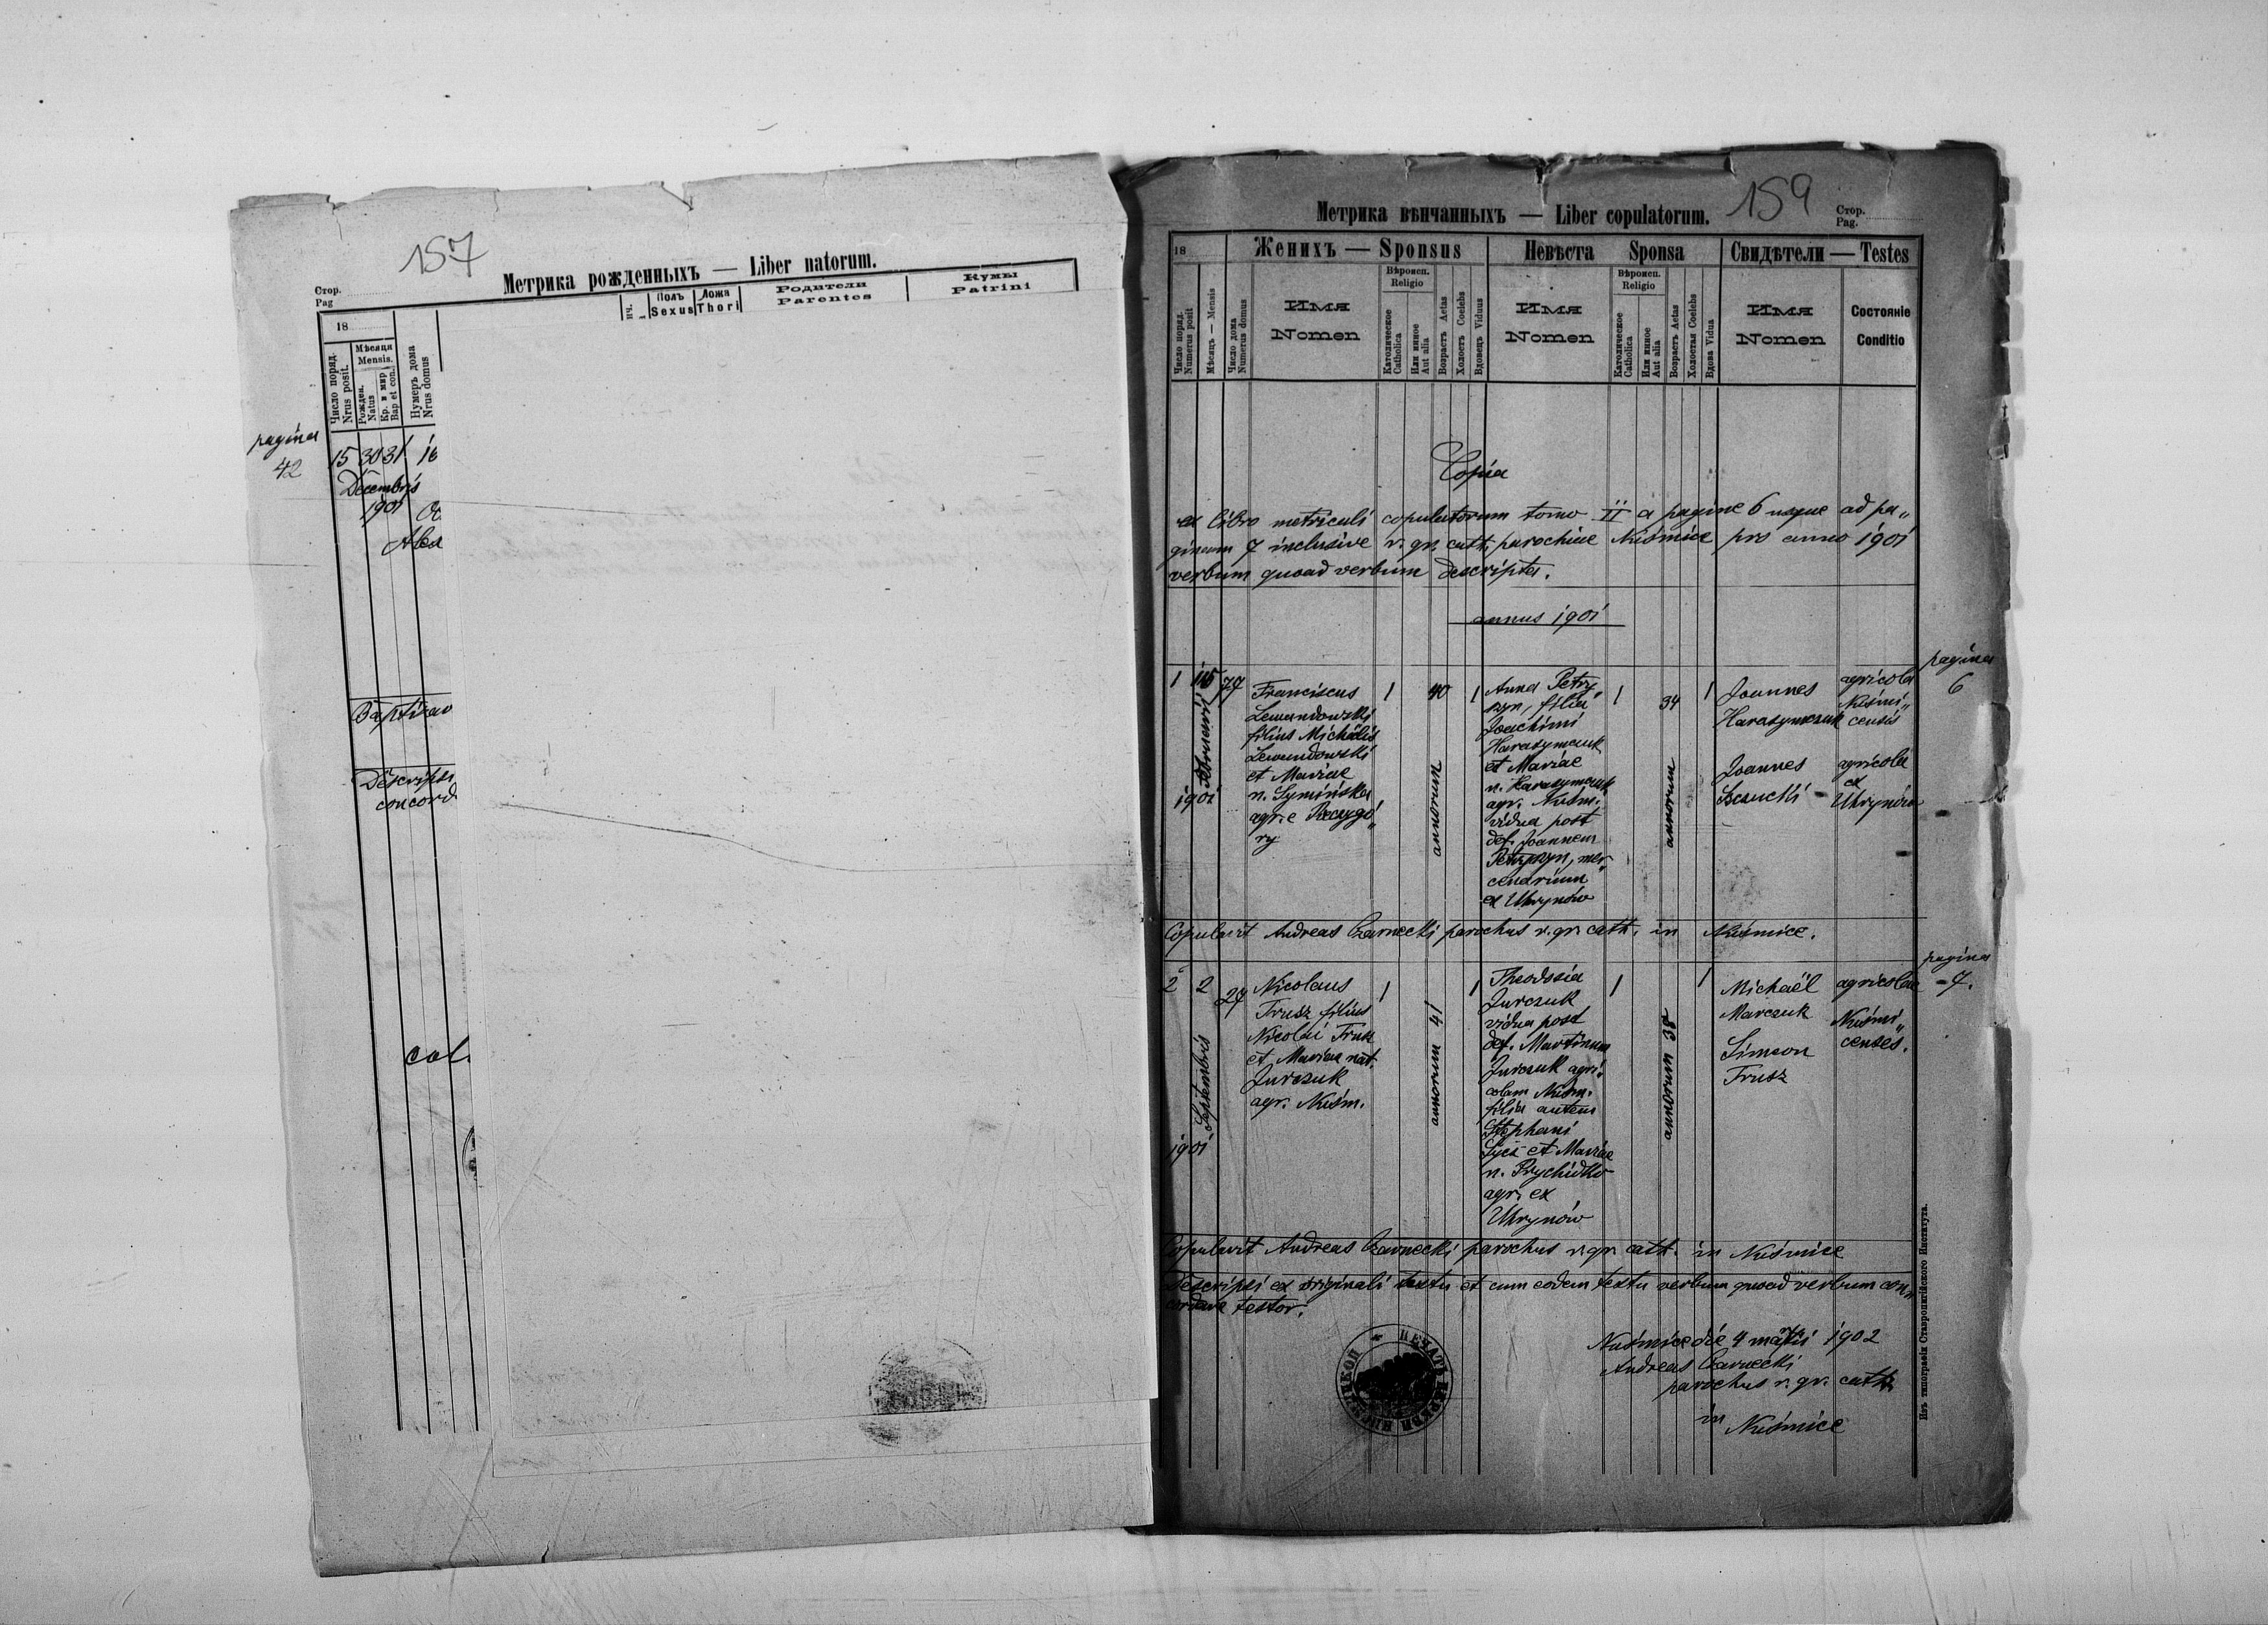 157
Метрика рожденныхъ — Liber natorum.
Стор.
Pag
18
Число поряд.
Nrus posit.
Мѣсяця
Mensis.
Рожден.
Natus
Кр. и мир
Bap et con.
Нумеръ дома
Nrus domus
Полъ
Sexus
Ложа
Thori
Родители
Parentes
Кумы
Patrini
pagina
42
15 30 31 16
Decembris
1901
Baptizav
Descripsi
concord
159
Метрика вѣнчанныхъ — Liber copulatorum.
Стор.
Pag.
18
Женихъ — Sponsus
Невѣста Sponsa
Свидѣтели — Testes
Число поряд.
Numerus posit
Мѣсяцъ — Mensis
Число дома
Numerus domus
Имя
Nomen
Вѣроисп.
Religio
Католическое
Catholica
Или инное
Aut alia
Возрастъ Aetas
Холостъ Coelebs
Вдовецъ Viduus
Имя
Nomen
Вѣроисп.
Religio
Католическое
Catholica
Или инное
Aut alia
Возрастъ Aetas
Холостая Coelebs
Вдова Vidua
Имя
Nomen
Состояніе
Conditio
Copia
ex libro metriculi copulatorum tomo II a pagine 6 usque ad pa„
ginam 7 inclusive r. gr. cath. parochiae Nuśmice pro anno 1901
verbum quoad verbum descripta.
annus 1901
pagina
6
1
Februarii
1901
77
Franciscus
Lewandowski
filius Michaëlis
Lewandowski
et Mariae
n. Symińska
agr. e Przezgó„
ry
1
40
annorum
1
Anna Petry„
szyn, filia
Joachimi
Harasymczuk
et Mariae
n. Harasymczuk
agr. Nuśm.
vidua post
def. Joannem
Petryszyn, mer„
cenarium
ex Uhrynów
1
34
annorum
1
Joannes
Harasymczuk
agricola
Nuśmi„
censis
Joannes
agricola
ex
Uhrynów
Copulavit Andreas Czarnecki parochus r. gr. cath. in Nuśmice.
pagina
7.
2 2
Septembris
1901
27
Nicolaus
Frusz filius
Nicolai Frusz
et Mariae nat.
Jurczuk
agr. Nuśm.
1
annorum 41
1
Theodosia
Jurczuk
vidua post
def. Martinum
Jurczuk agri„
colam Nuśm.
filia autem
Stephani
Sycz et Mariae
n. Prychidko
agr. ex
Uhrynów
1
annorum 38
1
Michaël
Marczuk
Simeon
Frusz
agricolae
Nuśmi„
censes.
Copulavit Andreas Czarnecki parochus r. gr. cath. in Nuśmice
Descripsi ex originali textu et cum eodem textu verbum quoad verbum con„
cordare testor.
Nuśmice die 4 1902
Andreas Czarnecki
parochus r. gr. cath.
in Nuśmice
Изъ типографіи Ставропигійского Института.